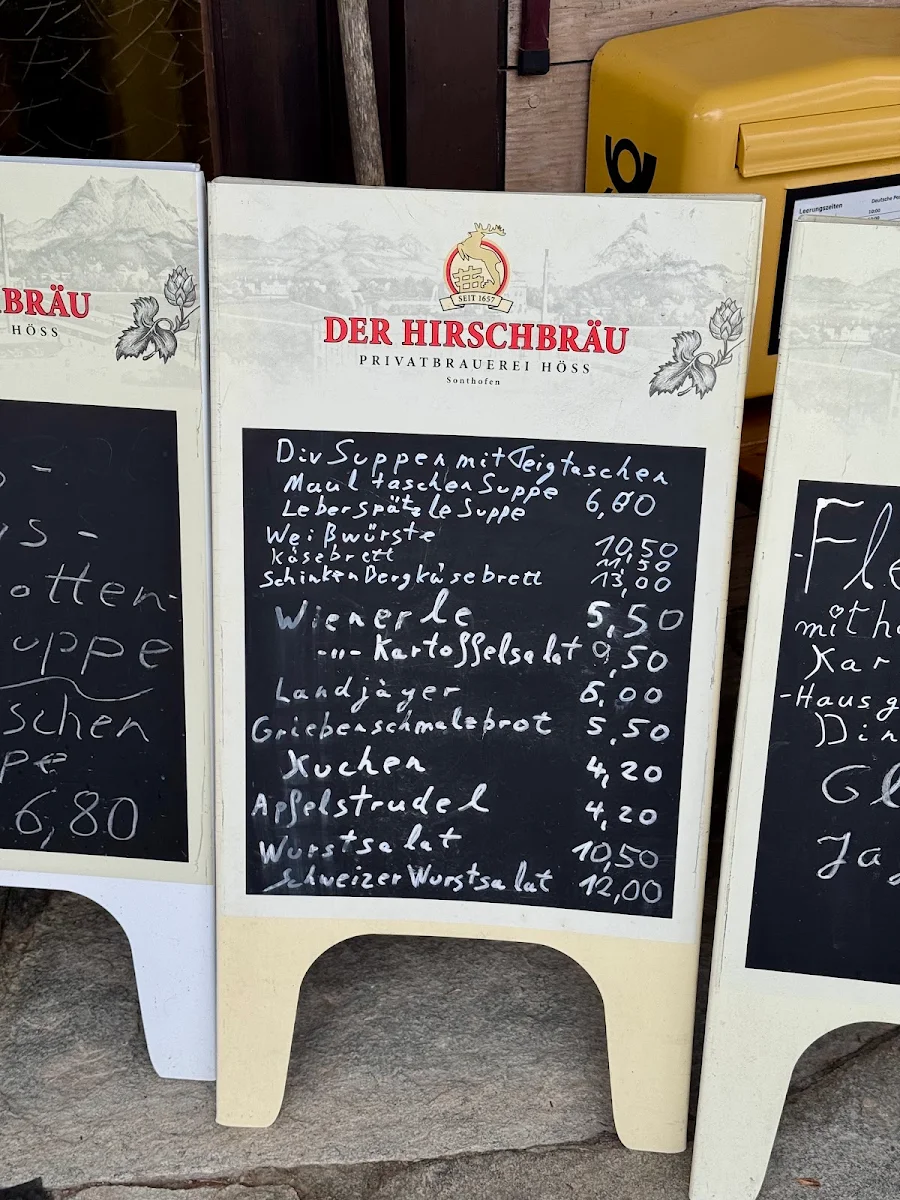 BRÄU
HÖSS
ys -
otten-
uppe
schen
pe
6,80
SEIT 1657
DER HIRSCHBRÄU
PRIVATBRAUEREI HÖSS
Sonthofen
Div Suppen mit Teigtaschen
Maultaschen Suppe 6,80
Leberspätzle Suppe
Weißwürste 10,50
Käsebrett 11,50
Schinken Bergkäsebrett 13,00
Wienerle 5,50
-"- Kartoffelsalat 9,50
Landjäger 6,00
Griebenschmalzbrot 5,50
Kuchen 4,20
Apfelstrudel 4,20
Wurstsalat 10,50
Schweizer Wurstsalat 12,00
Leerungszeiten
Deutsche Po
- Fle
mit ha
Kar
- Hausg
Din
Gl
Ja